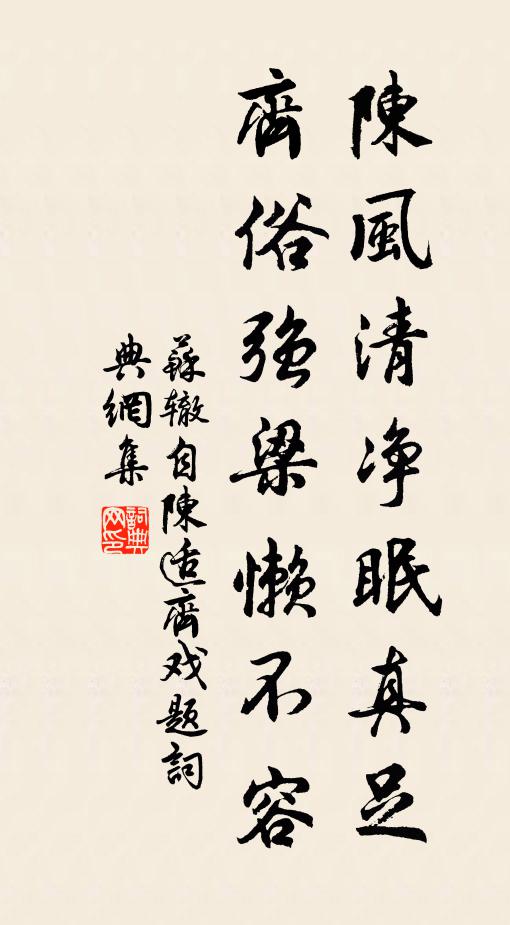 陳風清净眠真足
齊俗強梁懶不容
蘇辙自陳适齊戏题詞
典網集
詞典网印